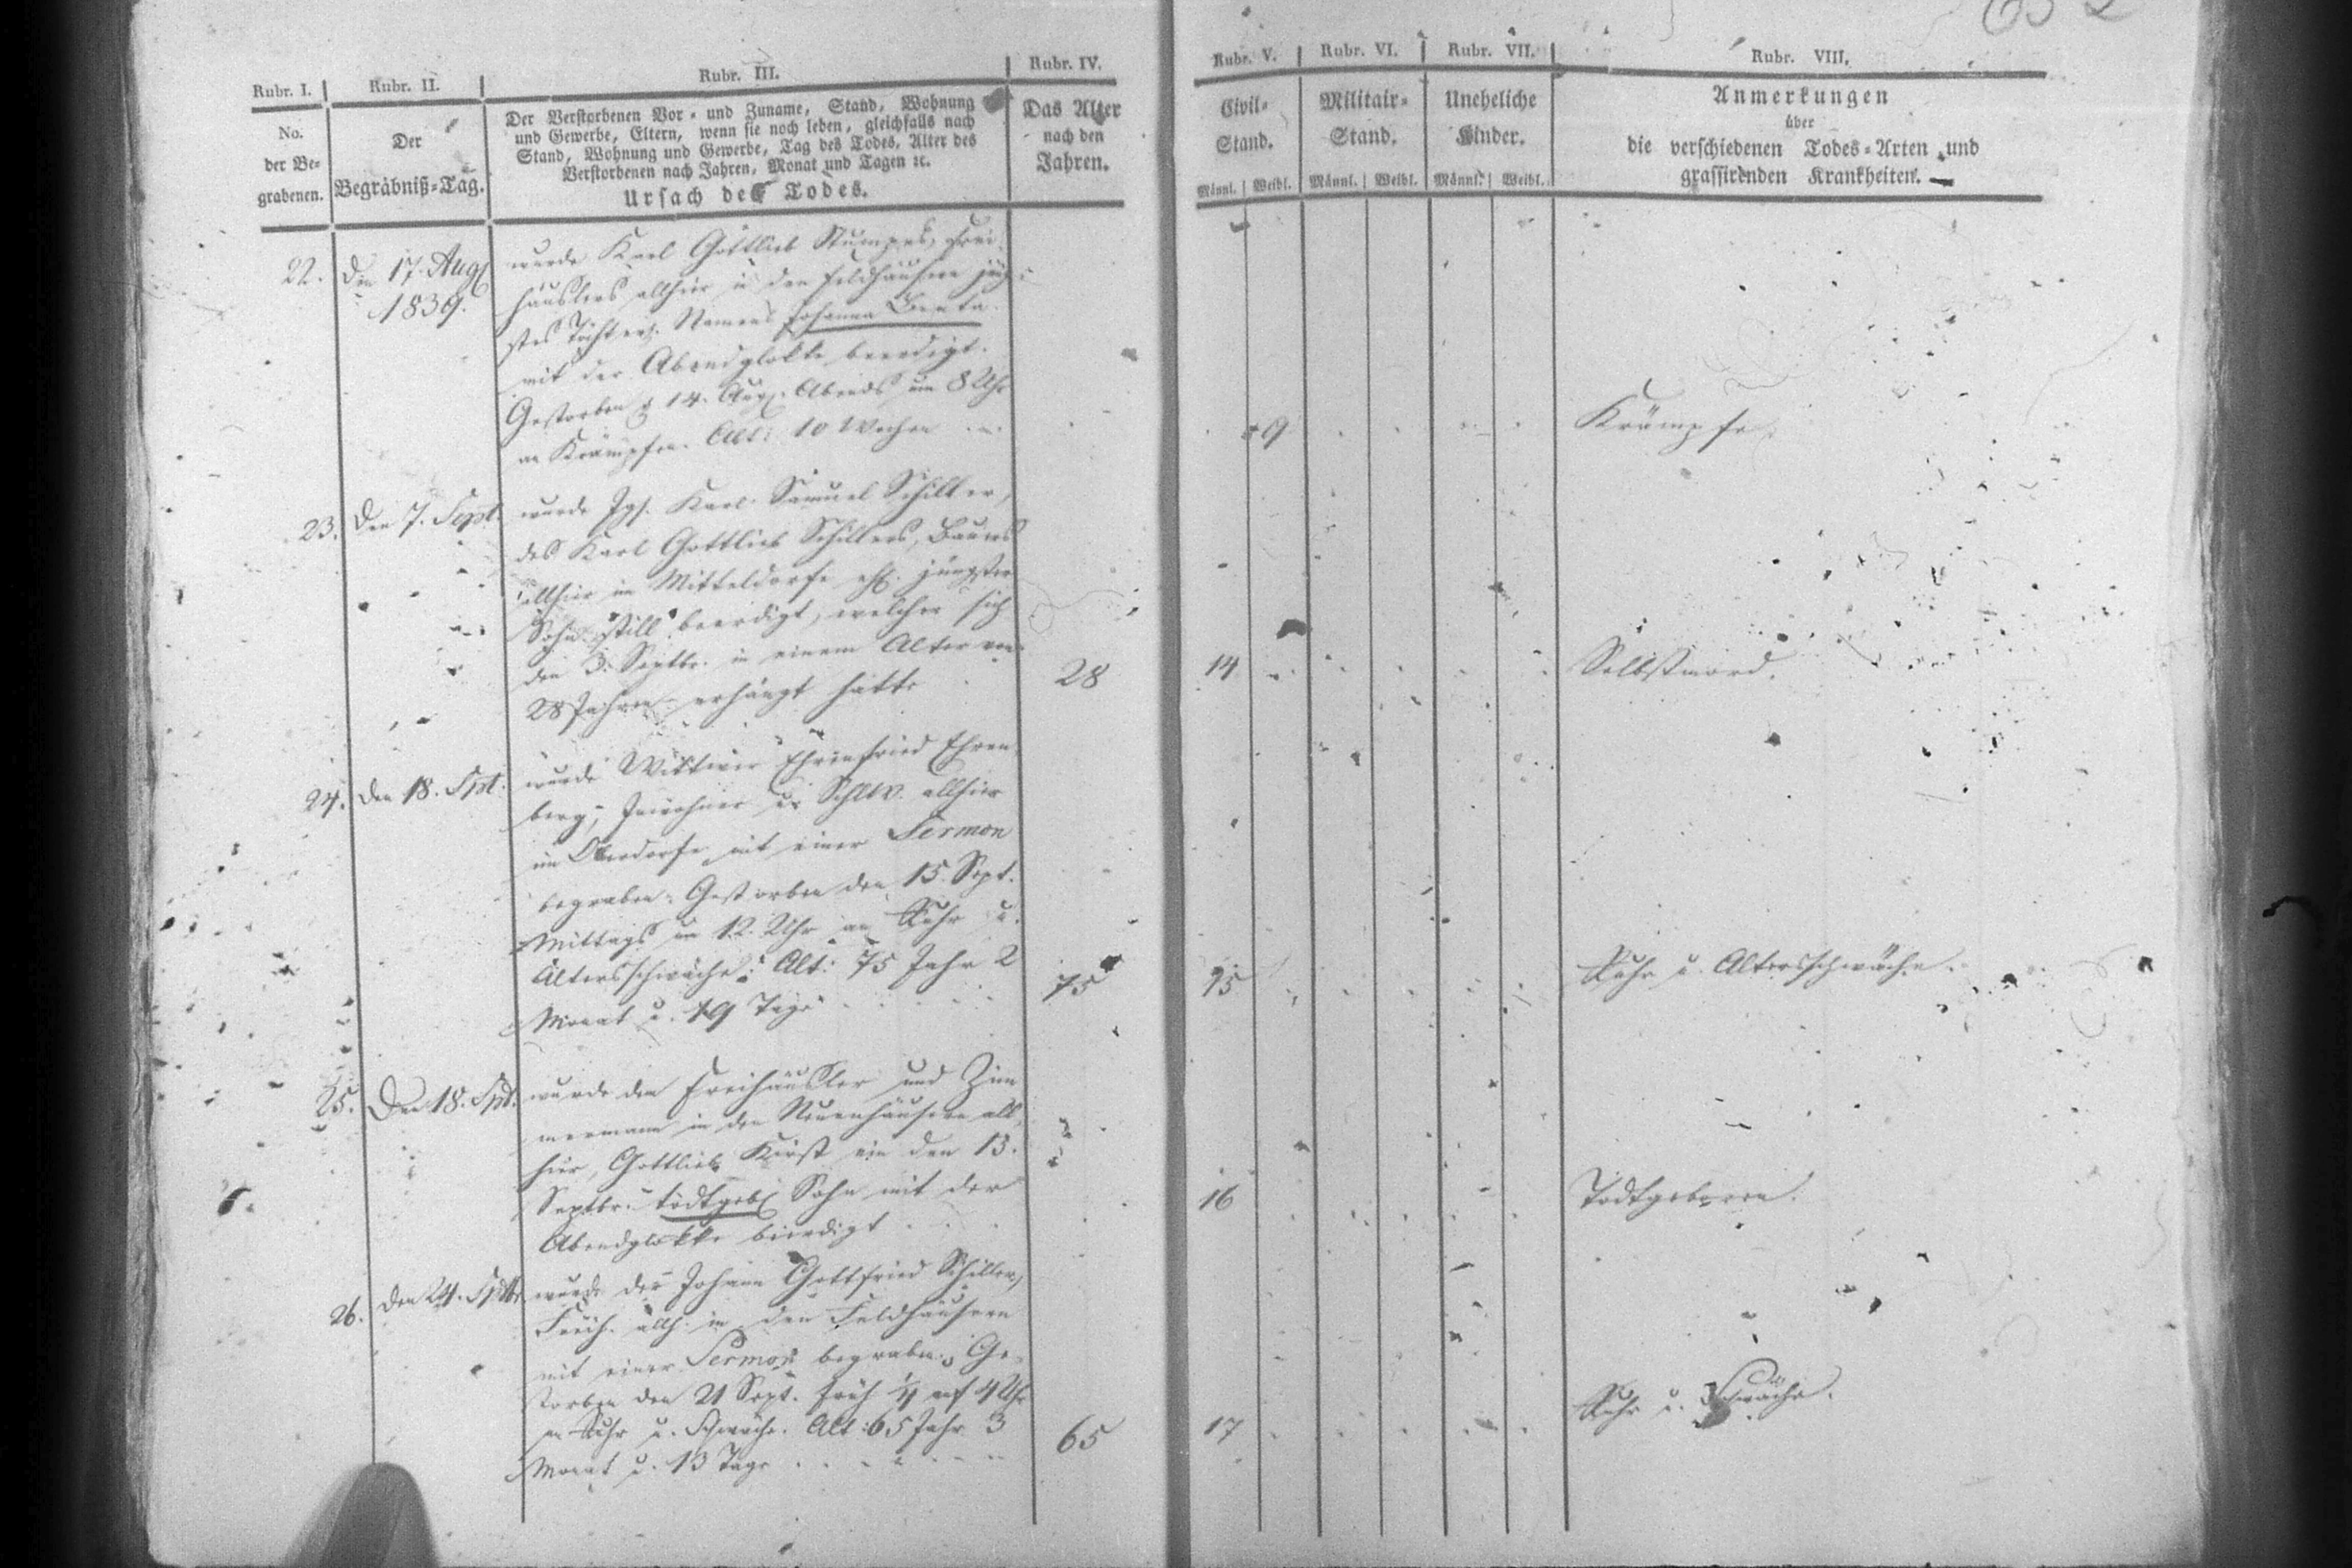 Rubr. I.
No.
der Be=
grabenen.
Rubr. II.
Der
Begräbniß=Tag.
Rubr. III.
Der Verstorbenen Vor= und Zuname, Stand, Wohnung
und Gewerbe, Eltern, wenn sie noch leben, gleichfalls nach
Stand, Wohnung und Gewerbe, Tag des Todes, Alter des
Verstorbenen nach Jahren, Monat und Tagen ꝛc.
Ursach des Todes.
Rubr. IV.
Das Alter
nach den
Jahren.
Rubr. V.
Civil=
Stand.
Männl. Weibl.
Rubr. VI.
Militair=
Stand.
Männl. Weibl.
Rubr. VII.
Uneheliche
Kinder.
Männl. Weibl.
Rubr. VIII.
Anmerkungen
über
die verschiedenen Todes=Arten und
grassirenden Krankheiten.
22.
Den 17. Aug
1839.
wurde Karl Gottlieb Stumpes, Frei-
häuslers allhier in den Feldhäusern jüng-
stes Töchterl. Namens Johanna Beata
mit der Abendglokke beerdigt.
Gestorben d 14. Aug. Abends um 8 Uhr
an Krämpfen. Alt: 10 Wochen
9
Krämpfe.
23.
Den 7. Sept.
wurde Jgs. Karl Samuel Schiller,
des Karl Gottlieb Schillers, Bauers
allhier im Mitteldorfe ehl. jüngster
Sohn still beerdigt, welcher sich
den 3. Septbr. in einem Alter von
28 Jahren erhängt hatte
28
14
Selbstmord.
24.
den 18. Spt.
wurde Wittwer Ehrenfried Ehren
berg, Inwohner u. allhier
im Oberdorfe mit einer Sermon
begraben. Gestorben den 15. Sept.
Mittags um 12. Uhr an Ruhr u.
Altersschwäche. Alt: 75 Jahr 2
Monat u. 19 Tage
75
15
Ruhr u. Altersschwäche.
25.
Den 18. Spt.
wurde dem Freihäusler und Zim
mermann in den Neuenhäusern all
hier, Gottlieb Kirst ein den 13.
Septbr. todtgeb Sohn mit der
Abendglokke beerdigt
16
Todtgeboren.
26.
den 24. Septbr.
wurde der Johann Gottfried Schiller,
Freih. allh. in den Feldhäusern
mit einer Sermon begraben. Ge-
storben den 21 Sept. früh 1/4 auf 4 Uhr
an Ruhr u. Schwäche. Alt: 65 Jahr 3
Monat u. 13 Tage
65
17
Ruhr u. Schwäche.